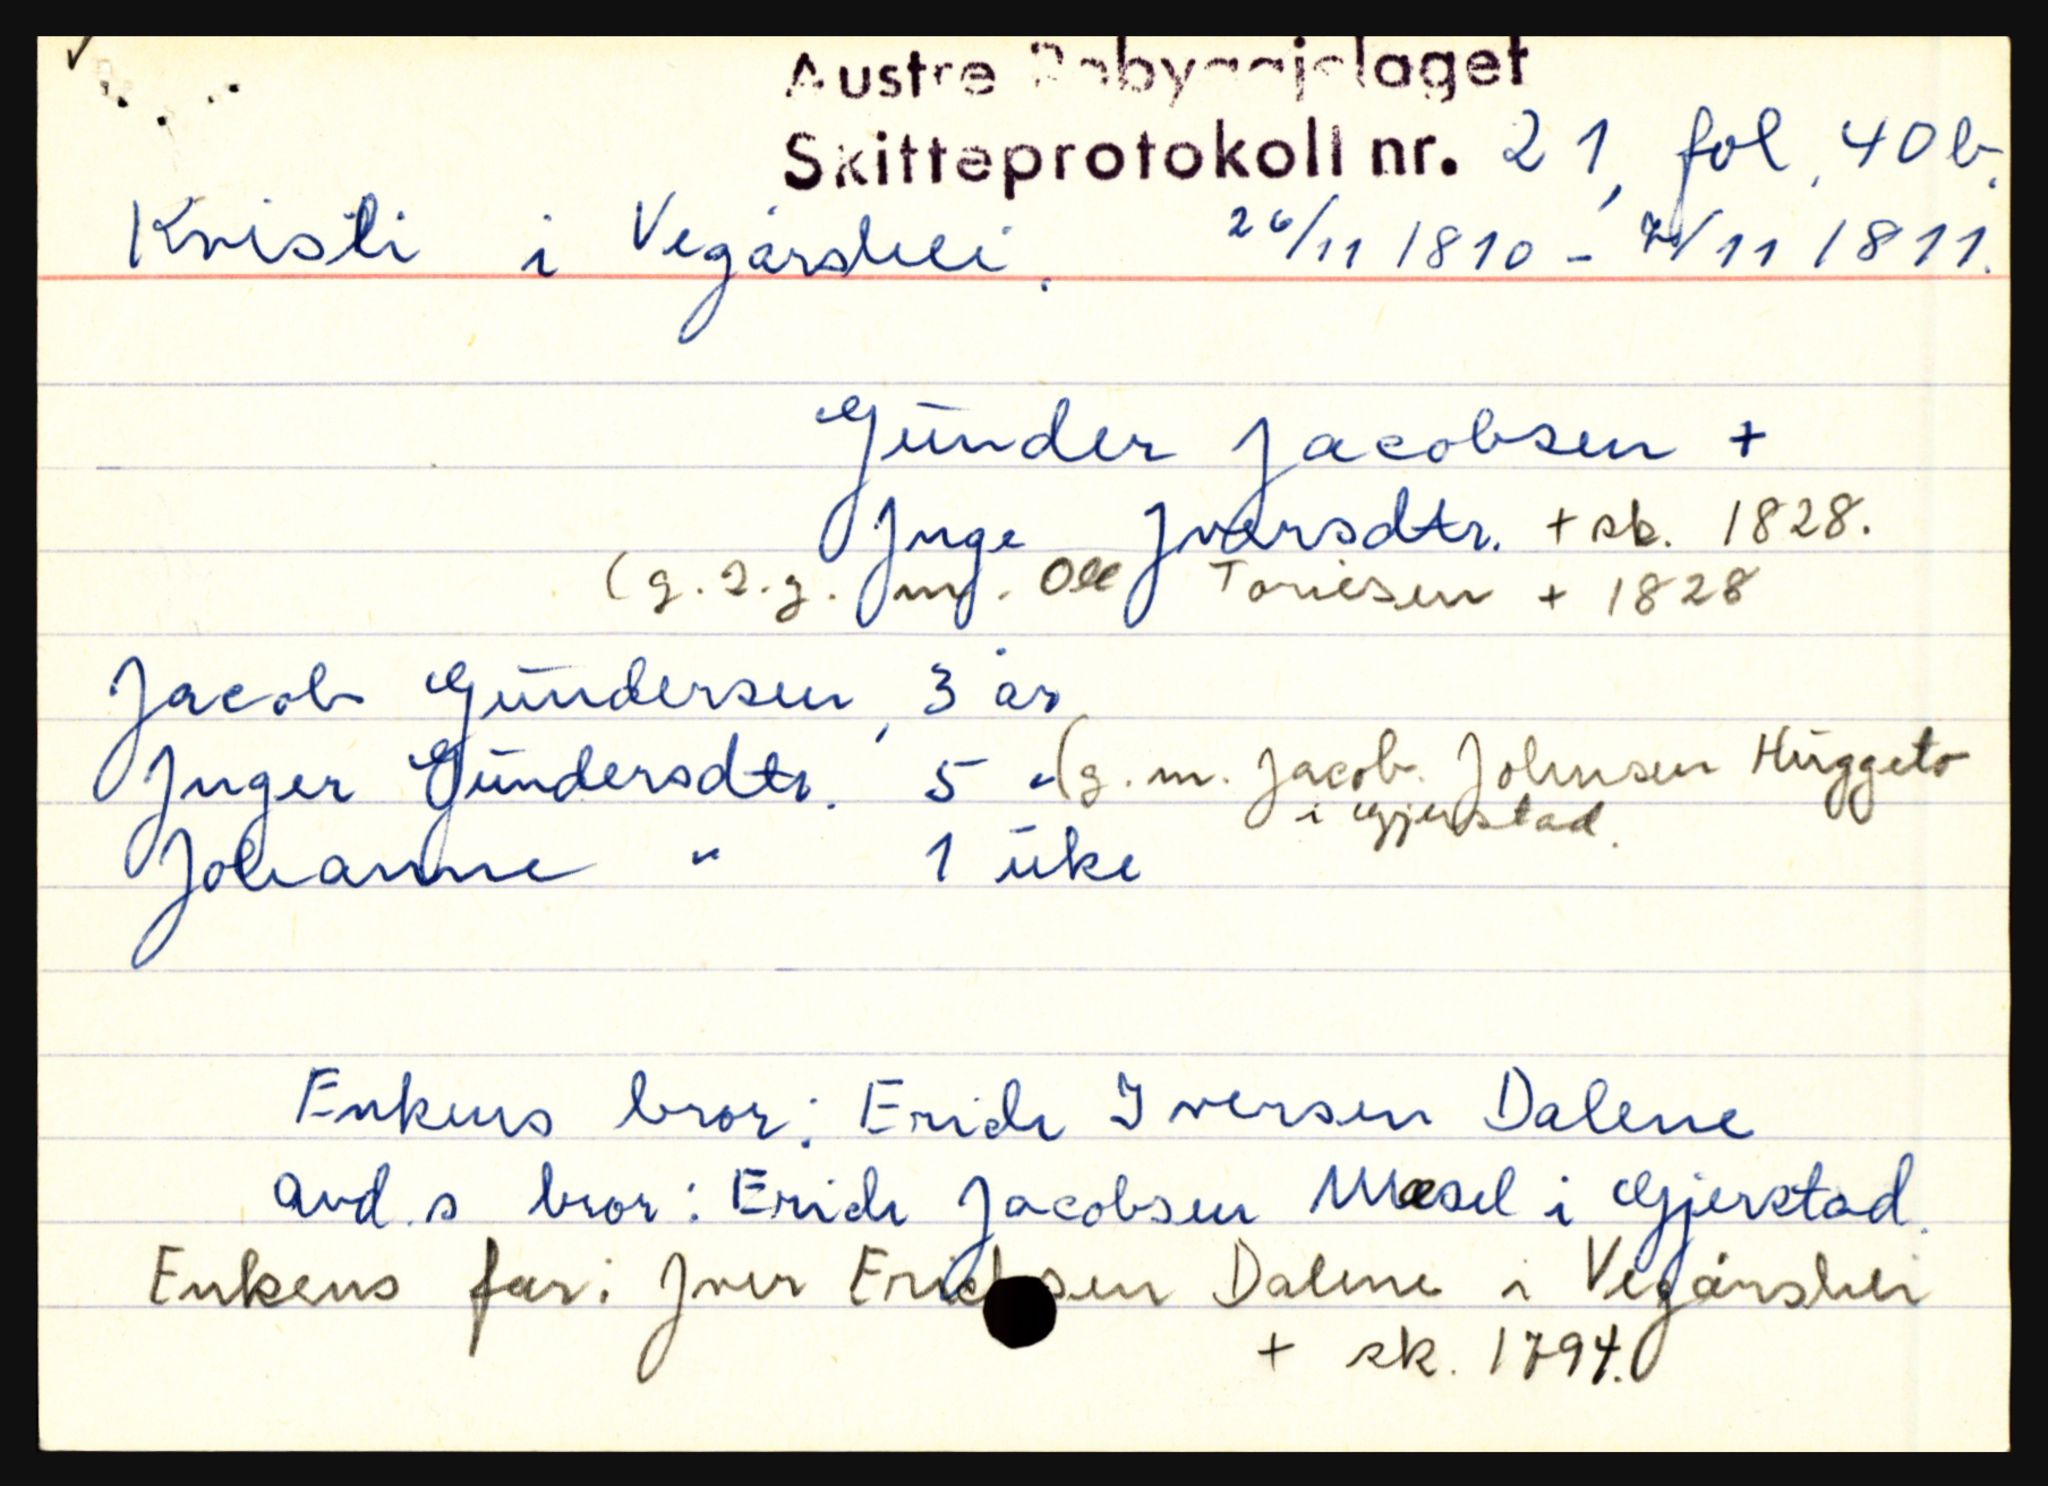 Austre Råbyggjelaget
Skifteprotokoll nr. 21, fol. 40b.
Kvisti i Vegårshei. 26/11 1810 - /11 1811.
Gunder Jacobsen +
Inge Iversdtr. + sk. 1828.
(g. 2. g. m. Ole Toriesen + 1828
Jacob Gundersen, 3 år
Inger Gundersdtr. 5 " (g. m. Jacob Johnsen Huggeto
i Gjerstad.
Johanne " 1 uke
Enkens bror: Erich Iversen Dalene
avd.s bror: Erich Jacobsen Mæsel i Gjerstad.
Enkens far: Iver Erichsen Dalene i Vegårshei
+ sk. 1794.